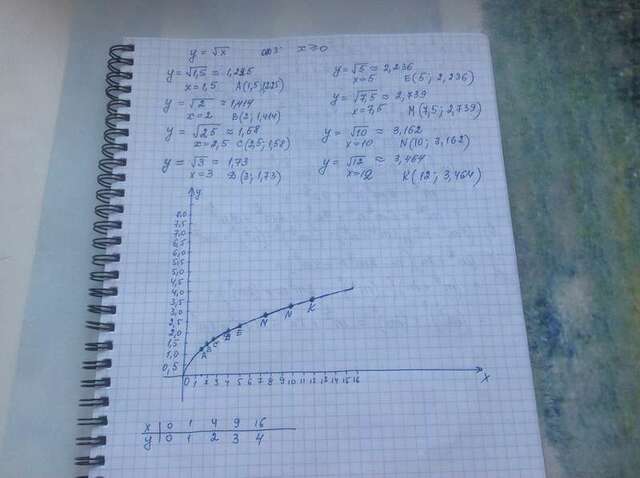 y = √x ООУ x ≥ 0
y = √1,5 ≈ 1,225
x = 1,5 A(1,5; 1,225)
y = √2 ≈ 1,414
x = 2 B(2; 1,414)
y = √2,5 ≈ 1,58
x = 2,5 C(2,5; 1,58)
y = √3 ≈ 1,73
x = 3 D(3; 1,73)
y = √5 ≈ 2,236
x = 5 E(5; 2,236)
y = √7,5 ≈ 2,739
x = 7,5 M(7,5; 2,739)
y = √10 ≈ 3,162
x = 10 N(10; 3,162)
y = √12 ≈ 3,464
x = 12 K(12; 3,464)
y
8,0
7,5
7,0
6,5
6,0
5,5
5,0
4,5
4,0
3,5
3,0
2,5
2,0
1,5
1,0
0,5
A B C D E N N K
0 1 2 3 4 5 6 7 8 9 10 11 12 13 14 15 16
x
x 0 1 4 9 16
y 0 1 2 3 4